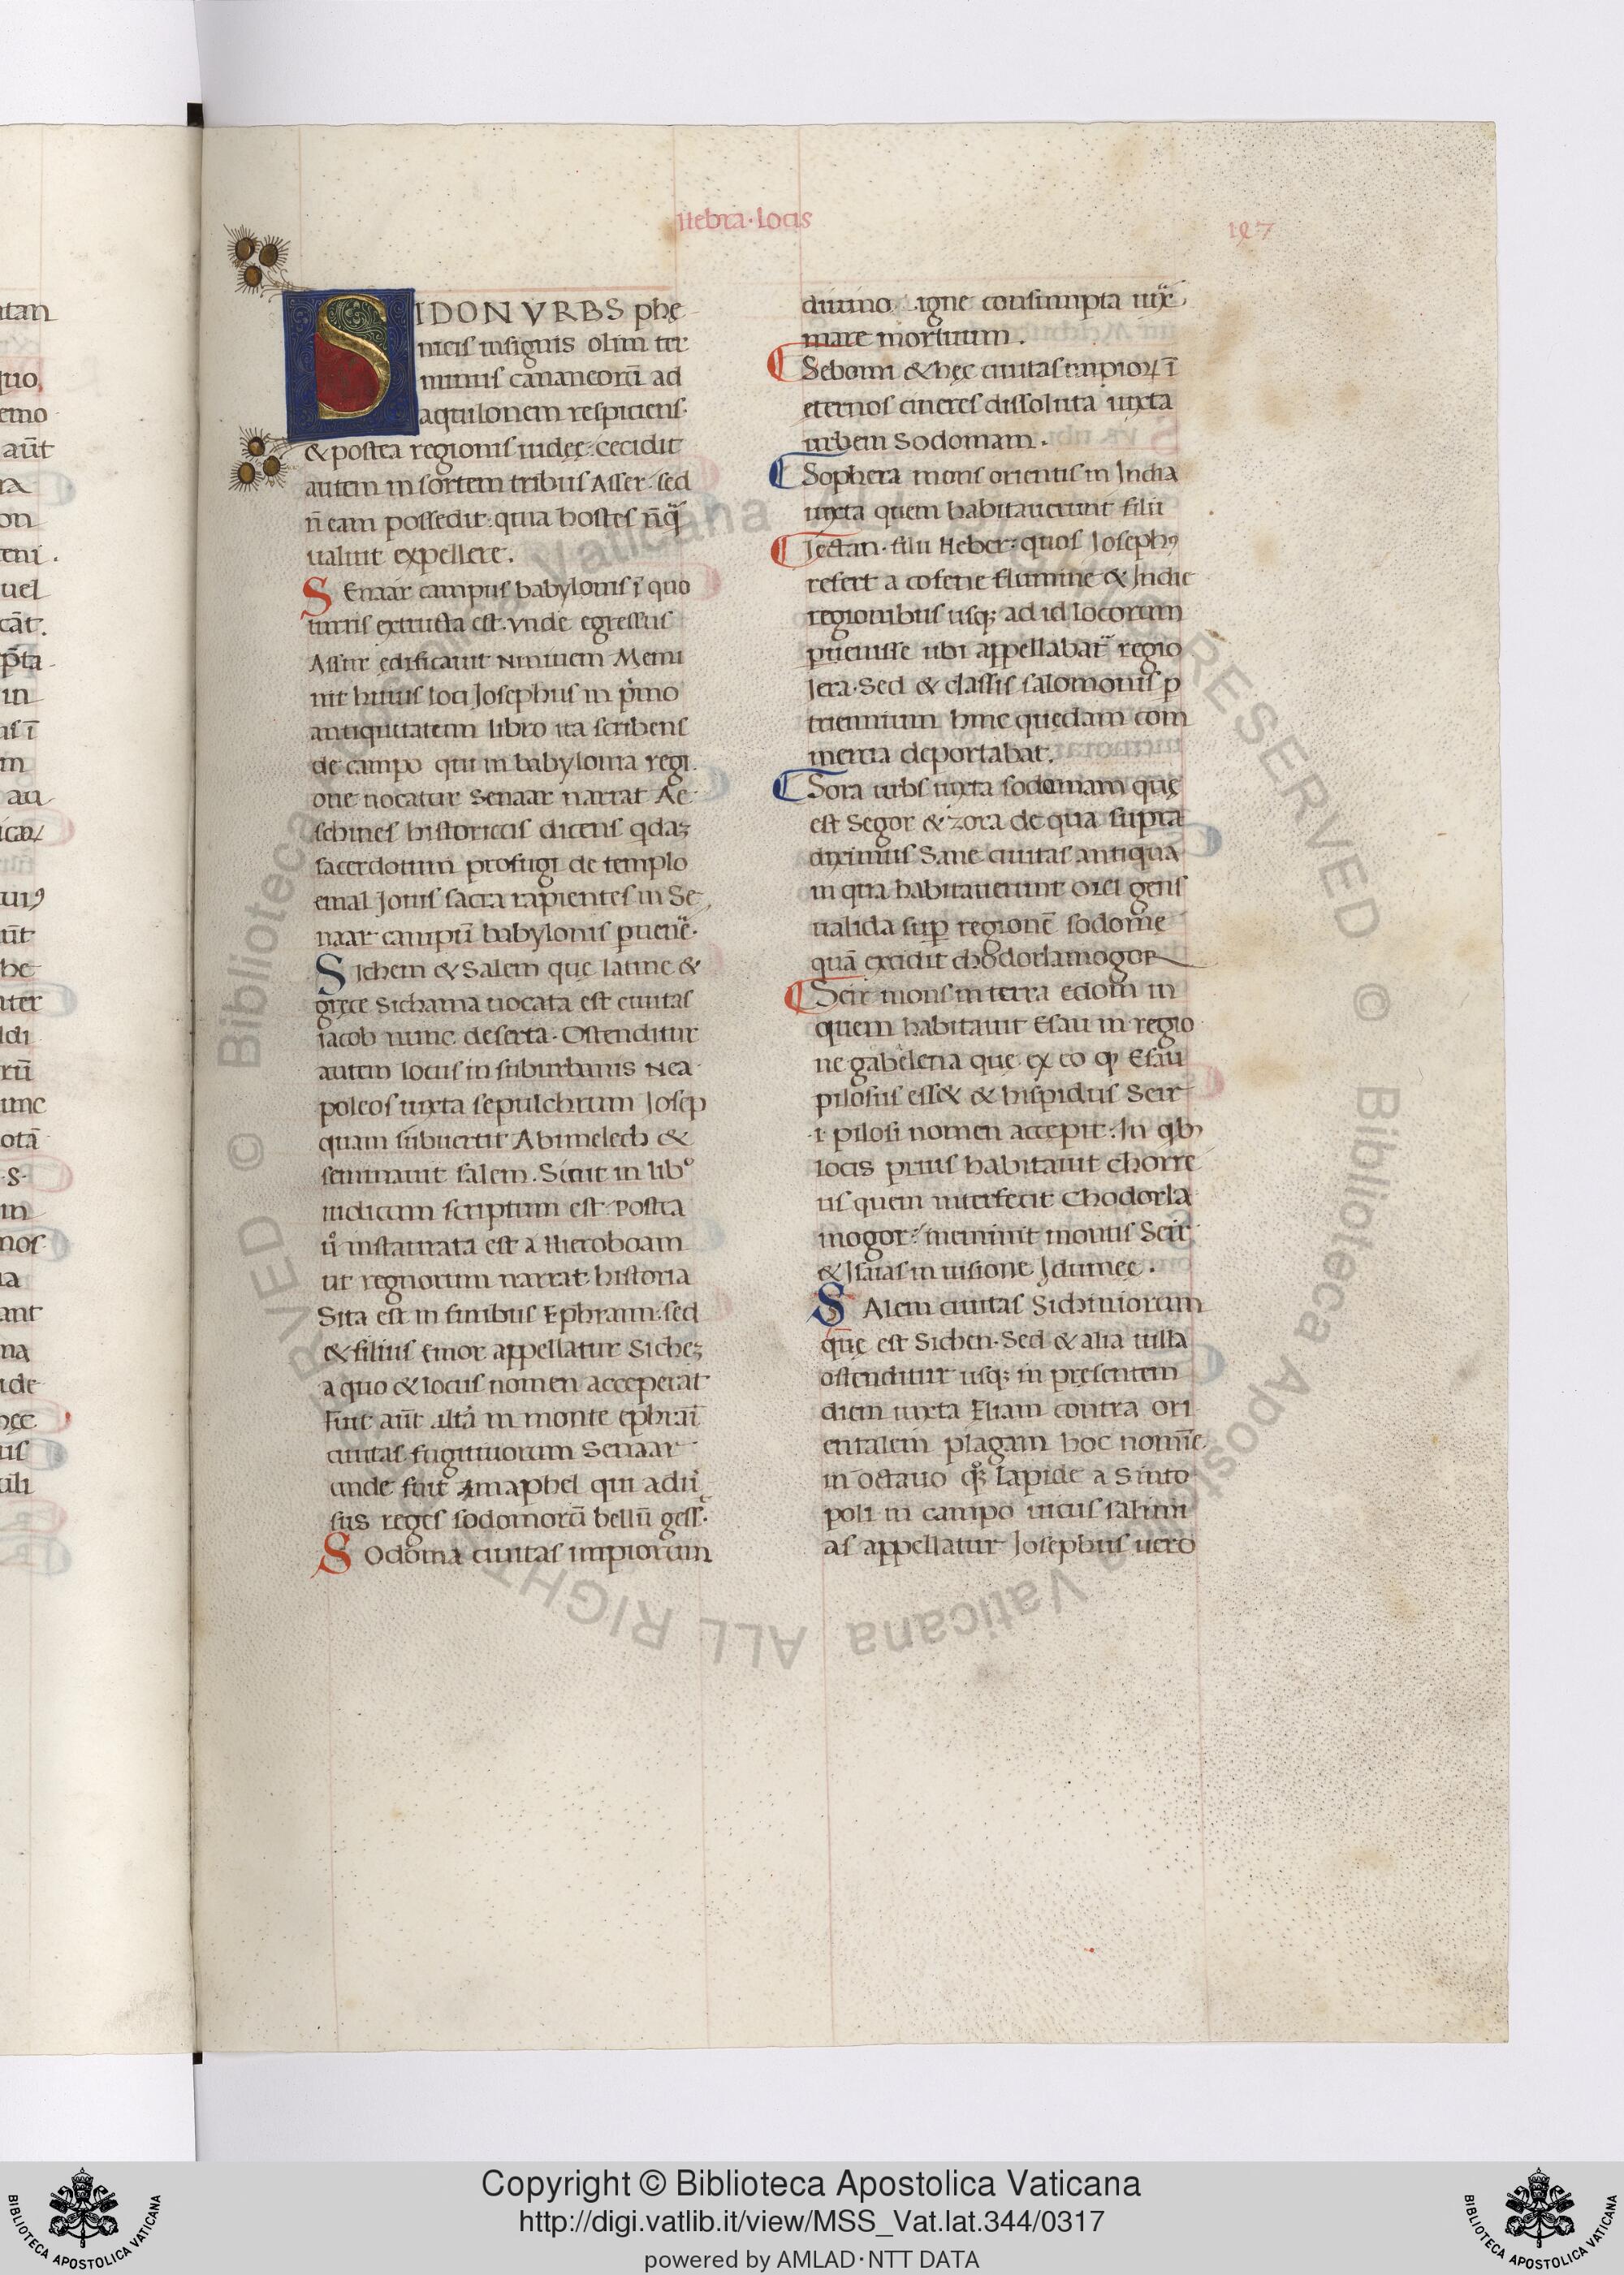 Hebra·Locis
127
SIDON VRBS phę
nicis insignis olim ter
minus cananeorū ad
aquilonem respiciens·
& postea regionis iudeę: cecidit
autem in sortem tribus Asser· sed
n̄ eam possedit: quia hostes nūq̃
ualuit expellere.
Senaar campus babylonis ī quo
turris extructa est. vnde egressus
Assur edificauit Niniuem Memi
nit huius loci Josephus in p̃mo
antiquitatum libro ita scribens
de campo qui in babylonia regi
one uocatur Senaar narrat Ae
schines historicis dicens qdaʒ
sacerdotum profugi de templo
emal Jouis sacra rapientes in Se
naar campū babylonis peruenẽ·
Sichem & Salem que latine &
gręce Sichama uocata est ciuitas
iacob nunc deserta· Ostenditur
autem locus in suburbanis Nea
poleos iuxta sepulchrum Josep
quam subuertit Abimelech &
seminauit salem. Sicut in libº
iudicum scriptum est. Postea
ů instaurata est a Hieroboam
ut regnorum narrat historia
Sita est in finibus Ephraim· sed
& filius Emor appellatur Sicheʒ
a quo & locus nomen acceperat
Fuit aūt alta in monte ephraī
ciuitas fugitiuorum Senaar
unde fuit Amaphel qui adů
sus reges sodomorū bellū gess̃·
Sodoma ciuitas impiorum
diuino igne consumpta iux̃
mare mortuum.
Seboim & hęc ciuitas impioꝝ ī
eternos cineres dissoluta iuxta
urbem Sodomam.
Sophera mons orientis in India
iuxta quem habitauerunt filii
Jectan· filii Heber: quos Josephꝰ
refert a cofene flumine & Indie
regionibus usqꝫ ad id locorum
puenisse ubi appellabat̃ regio
Jera· Sed & classis salomonis p̱
triennium hinc quędam com
mercia deportabat.
Sora urbs iuxta sodomam quę
est Segor & zora de qua supra
diximus Sane ciuitas antiqua
in qua habitauerunt orei gens
ualida sup̱ regionē sodome
quā excidit chodorlamogor
Seir mons in terra edom in
quem habitauit Esau in regio
ne gabelena que ex eo qp Esau
pilosus ess& & hispidus Seir
·i· pilosi nomen accepit. In qbꝰ
locis prius habitauit chorre
us quem interfecit Chodorla
mogor: meminit montis Seir
& Isaias in uisione Idumee.
Salem ciuitas Sichimorum
que est Sichen· Sed & alia uilla
ostenditur usqꝫ in presentem
diem iuxta Eliam contra ori
entalem plagam hoc nomīe
in octauo qꝫ lapide a Sinto
poli in campo uicus salimi
as appellatur Josephus uero
Copyright © Biblioteca Apostolica Vaticana
http://digi.vatlib.it/view/MSS_Vat.lat.344/0317
powered by AMLAD·NTT DATA